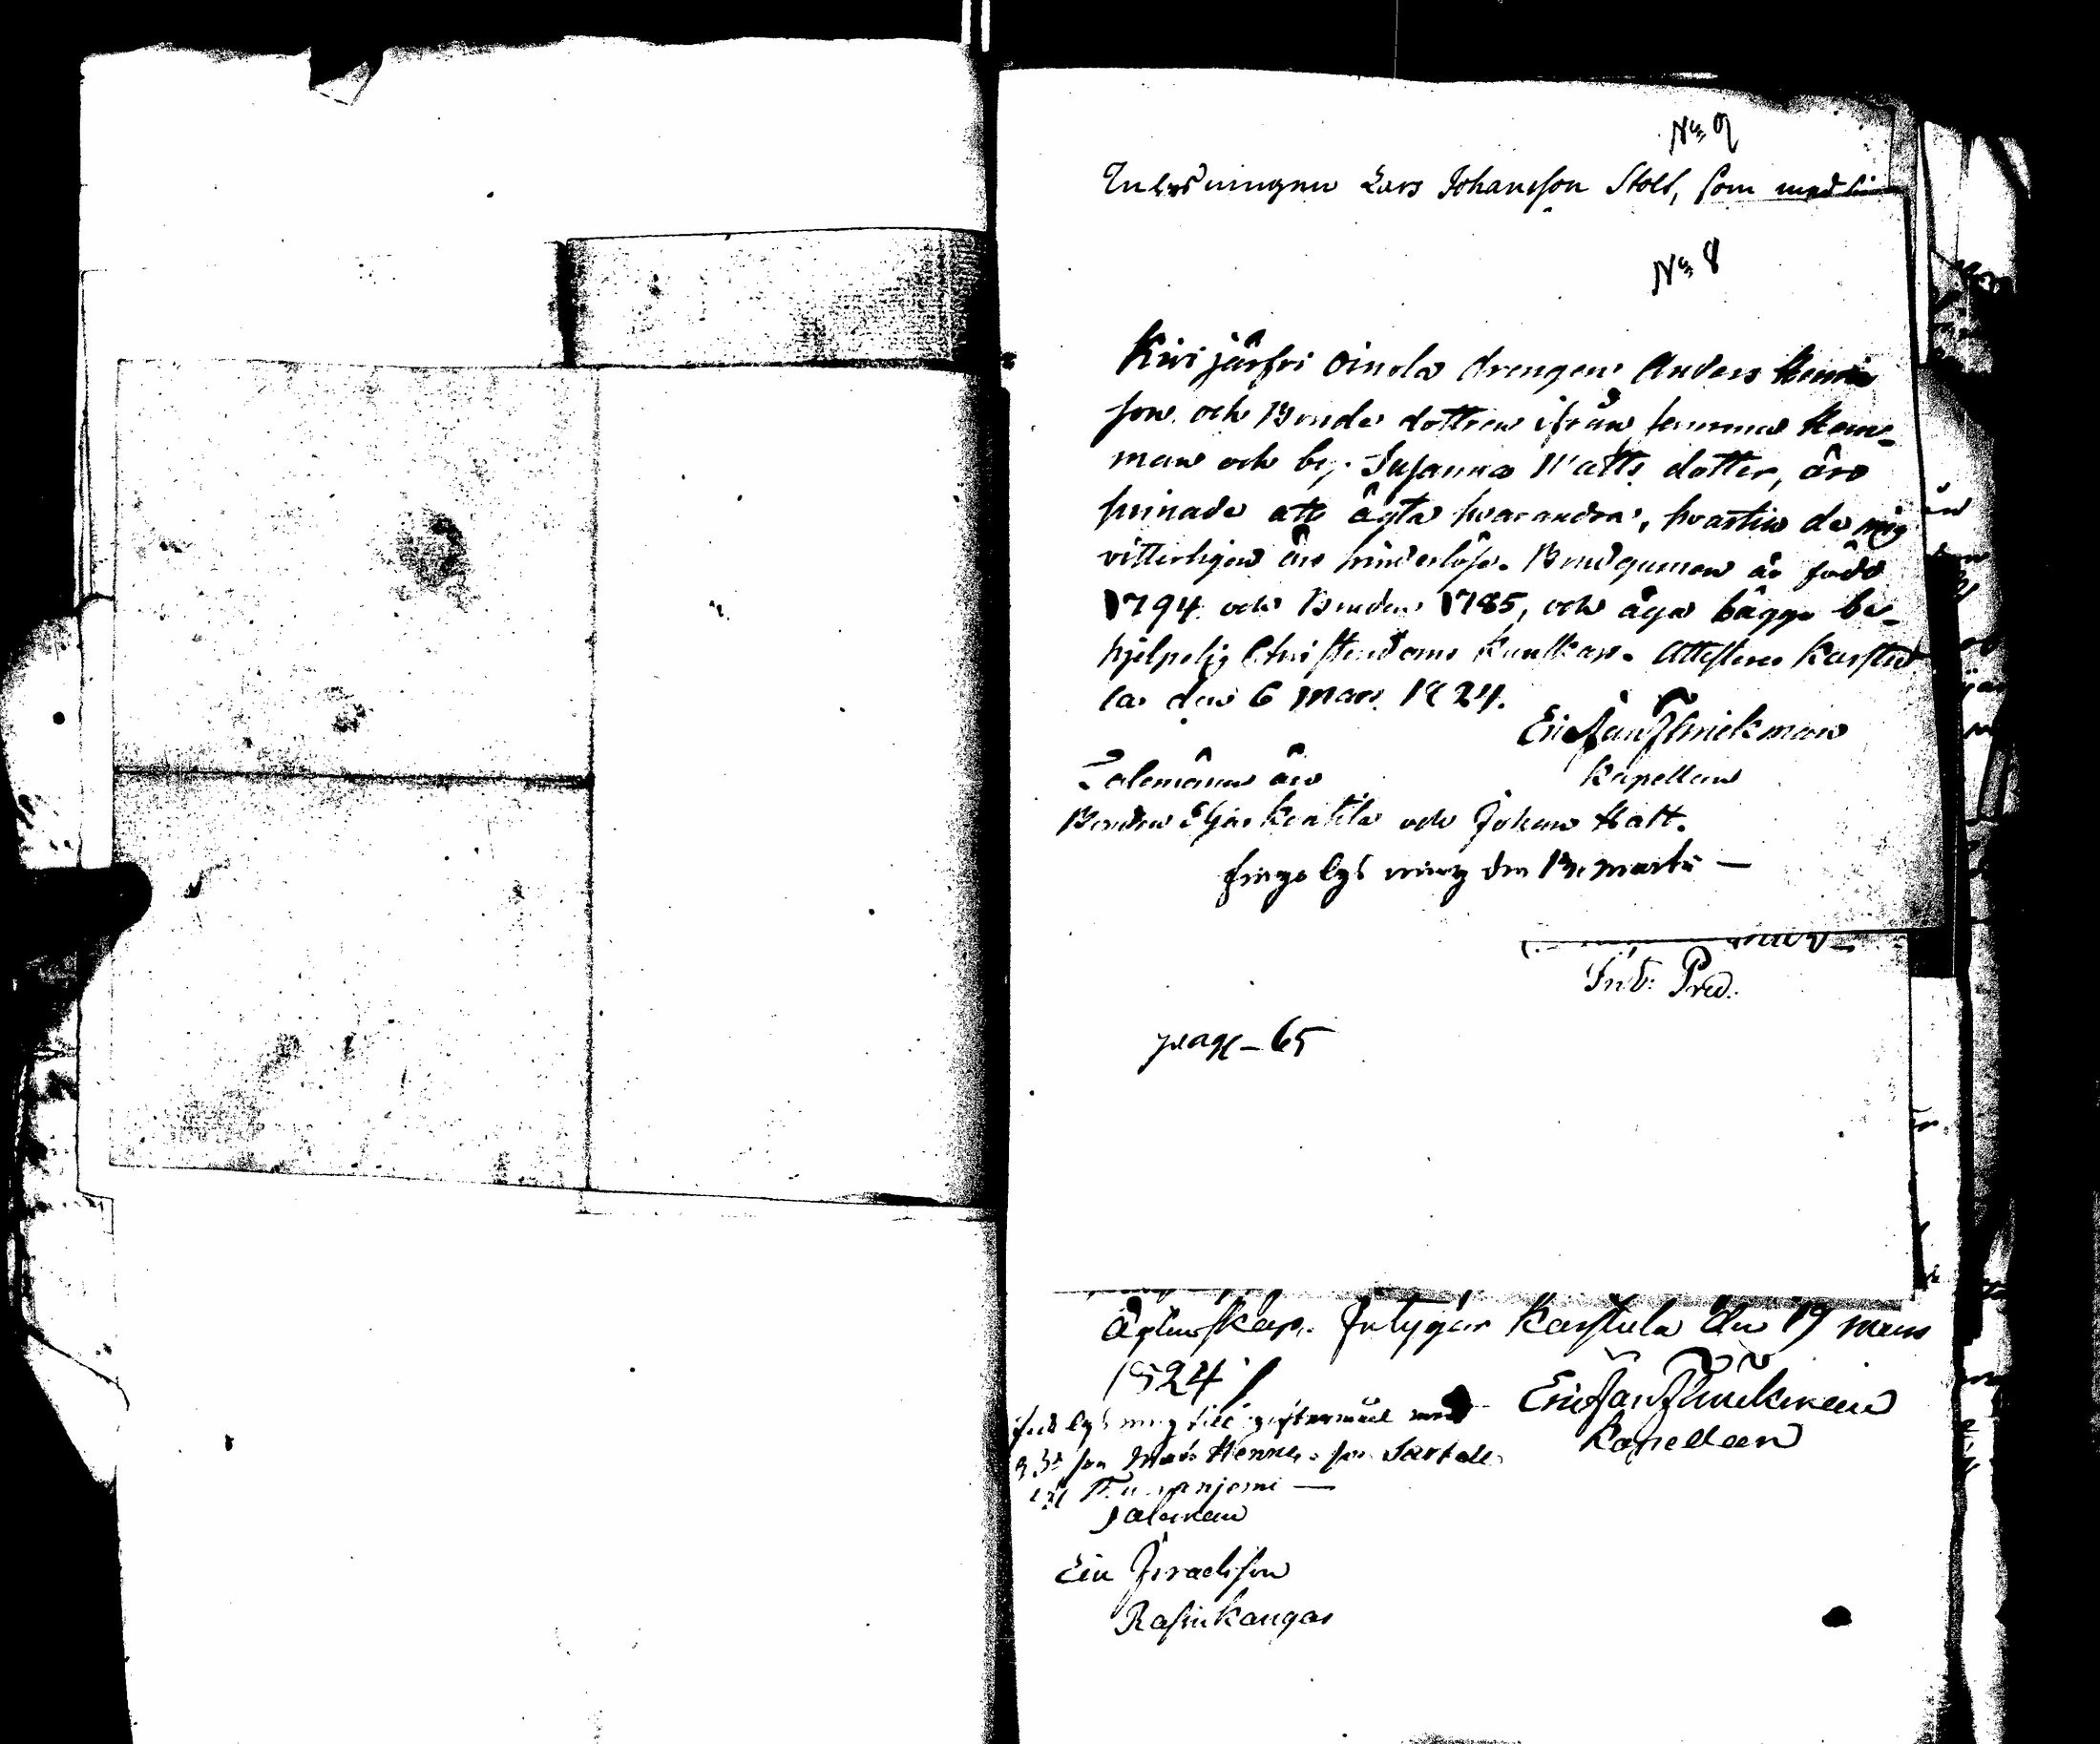 No 9
Inhysningen Lars Johansson Stolt, som med sin
No 8
Kivijärfvi Oinola drengen Anders Henrics
son och Bonde dottren ifrån samma Hem-
man och by Susanna Matts dotter, äro
sinnade att ägta hvarandra, hvartill de mig
vitterligen äro hinderlöse. Brudgumen är född
1794 och Bruden 1785, och äga bägge be-
hjelpelig Christendoms kunskap. Attesteras Karstu
la den 6 Mars 1824.
Eric Jan Flinckman
Kapellan
Talemänn äro
Bonden Elias Kanttila och Johan Hatt.
Fingo lysning den Martii —
Pred:
page – 65
Ägtenskap. Intygar Karstula den 19 Mars
1824
Eric Jan Flinckman
lysning till giftermål med
son Mats son
Kapellan
Taleman
Eric Israelsson
Rasinkangas